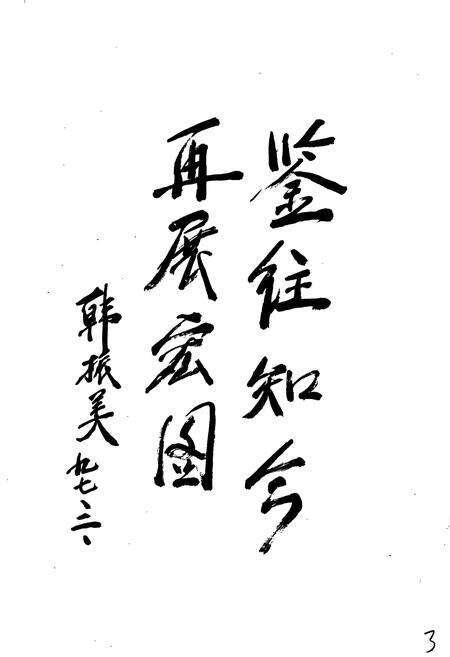 鉴往知今
再展宏图
韩振美
九七、三、
3